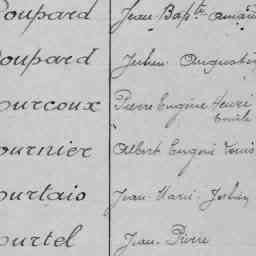 Poupard Jean Bapte Amand
Poupard Julien Augustin
ourcoux Pierre Eugène Henri
Emile
ournier Albert Eugène Louis
ourtais Jean Marie Julien
ourtel Jean-Pierre